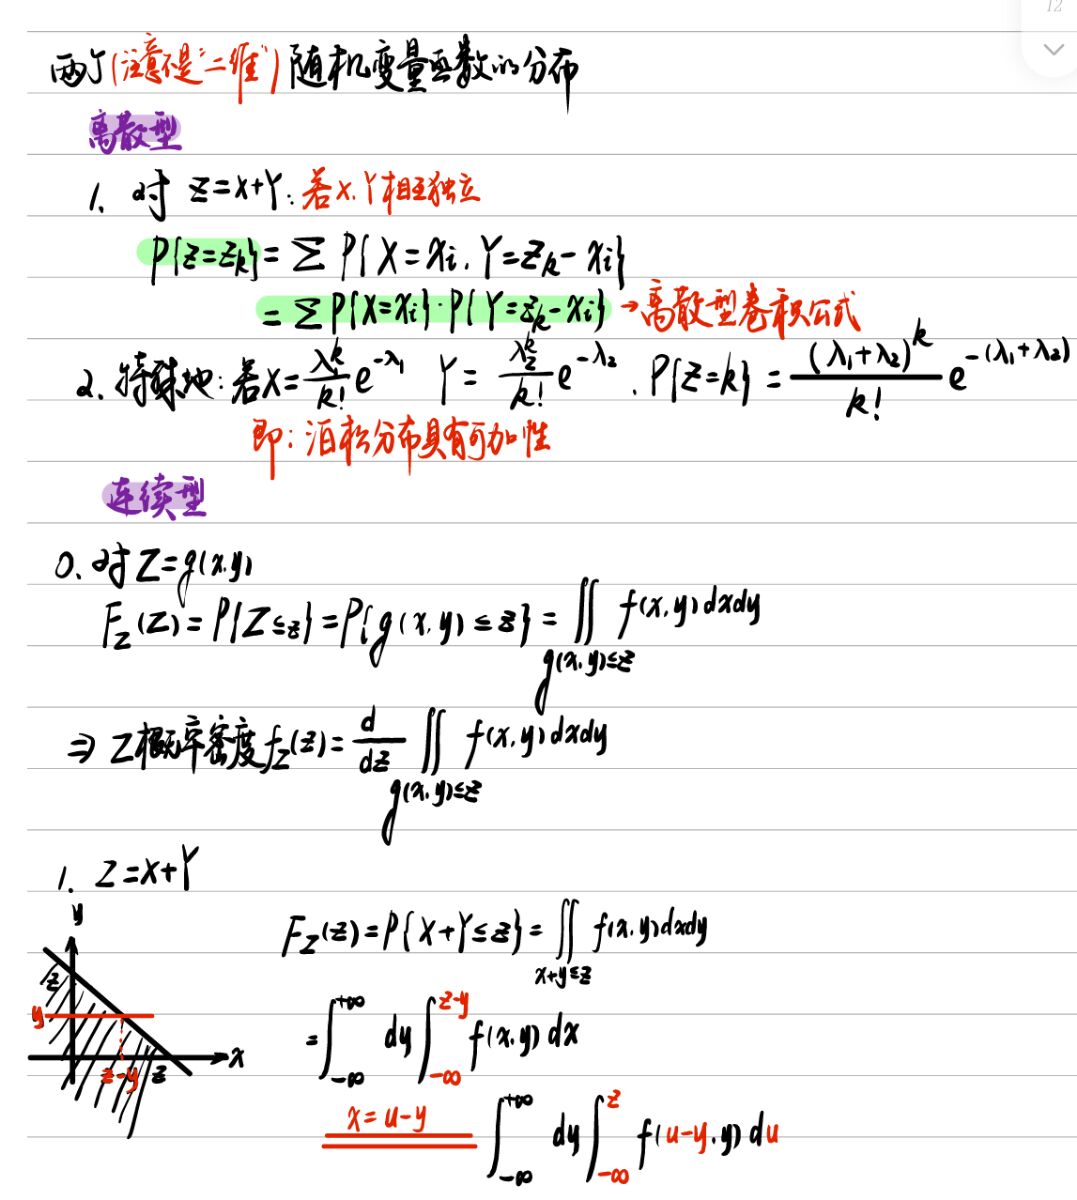 12
两个(注意不是“二维”)随机变量函数的分布
离散型
1. 对 Z=X+Y: 若X.Y相互独立
P{Z=Zk}=∑P{X=xi.Y=Zk-xi}
=∑P{X=xi}·P{Y=Zk-xi}→离散型卷积公式
2. 特殊地:若X=λ₁^k/k! e^(-λ₁) Y=λ₂^k/k! e^(-λ₂). P{Z=k}=(λ₁+λ₂)^k/k! e^(-(λ₁+λ₂))
即:泊松分布具有可加性
连续型
0. 对Z=g(x.y)
F_Z(Z)=P{Z≤z}=P{g(x.y)≤z}=∬_{g(x.y)≤z} f(x,y)dxdy
⇒ Z概率密度f_Z(z)=d/dz ∬_{g(x.y)≤z} f(x,y)dxdy
1. Z=X+Y
F_Z(z)=P{X+Y≤z}=∬_{x+y≤z} f(x.y)dxdy
y
z
y
z-y
z
x
=∫_{-∞}^{+∞} dy∫_{-∞}^{z-y} f(x,y)dx
x=u-y ∫_{-∞}^{+∞} dy∫_{-∞}^{z} f(u-y.y)du